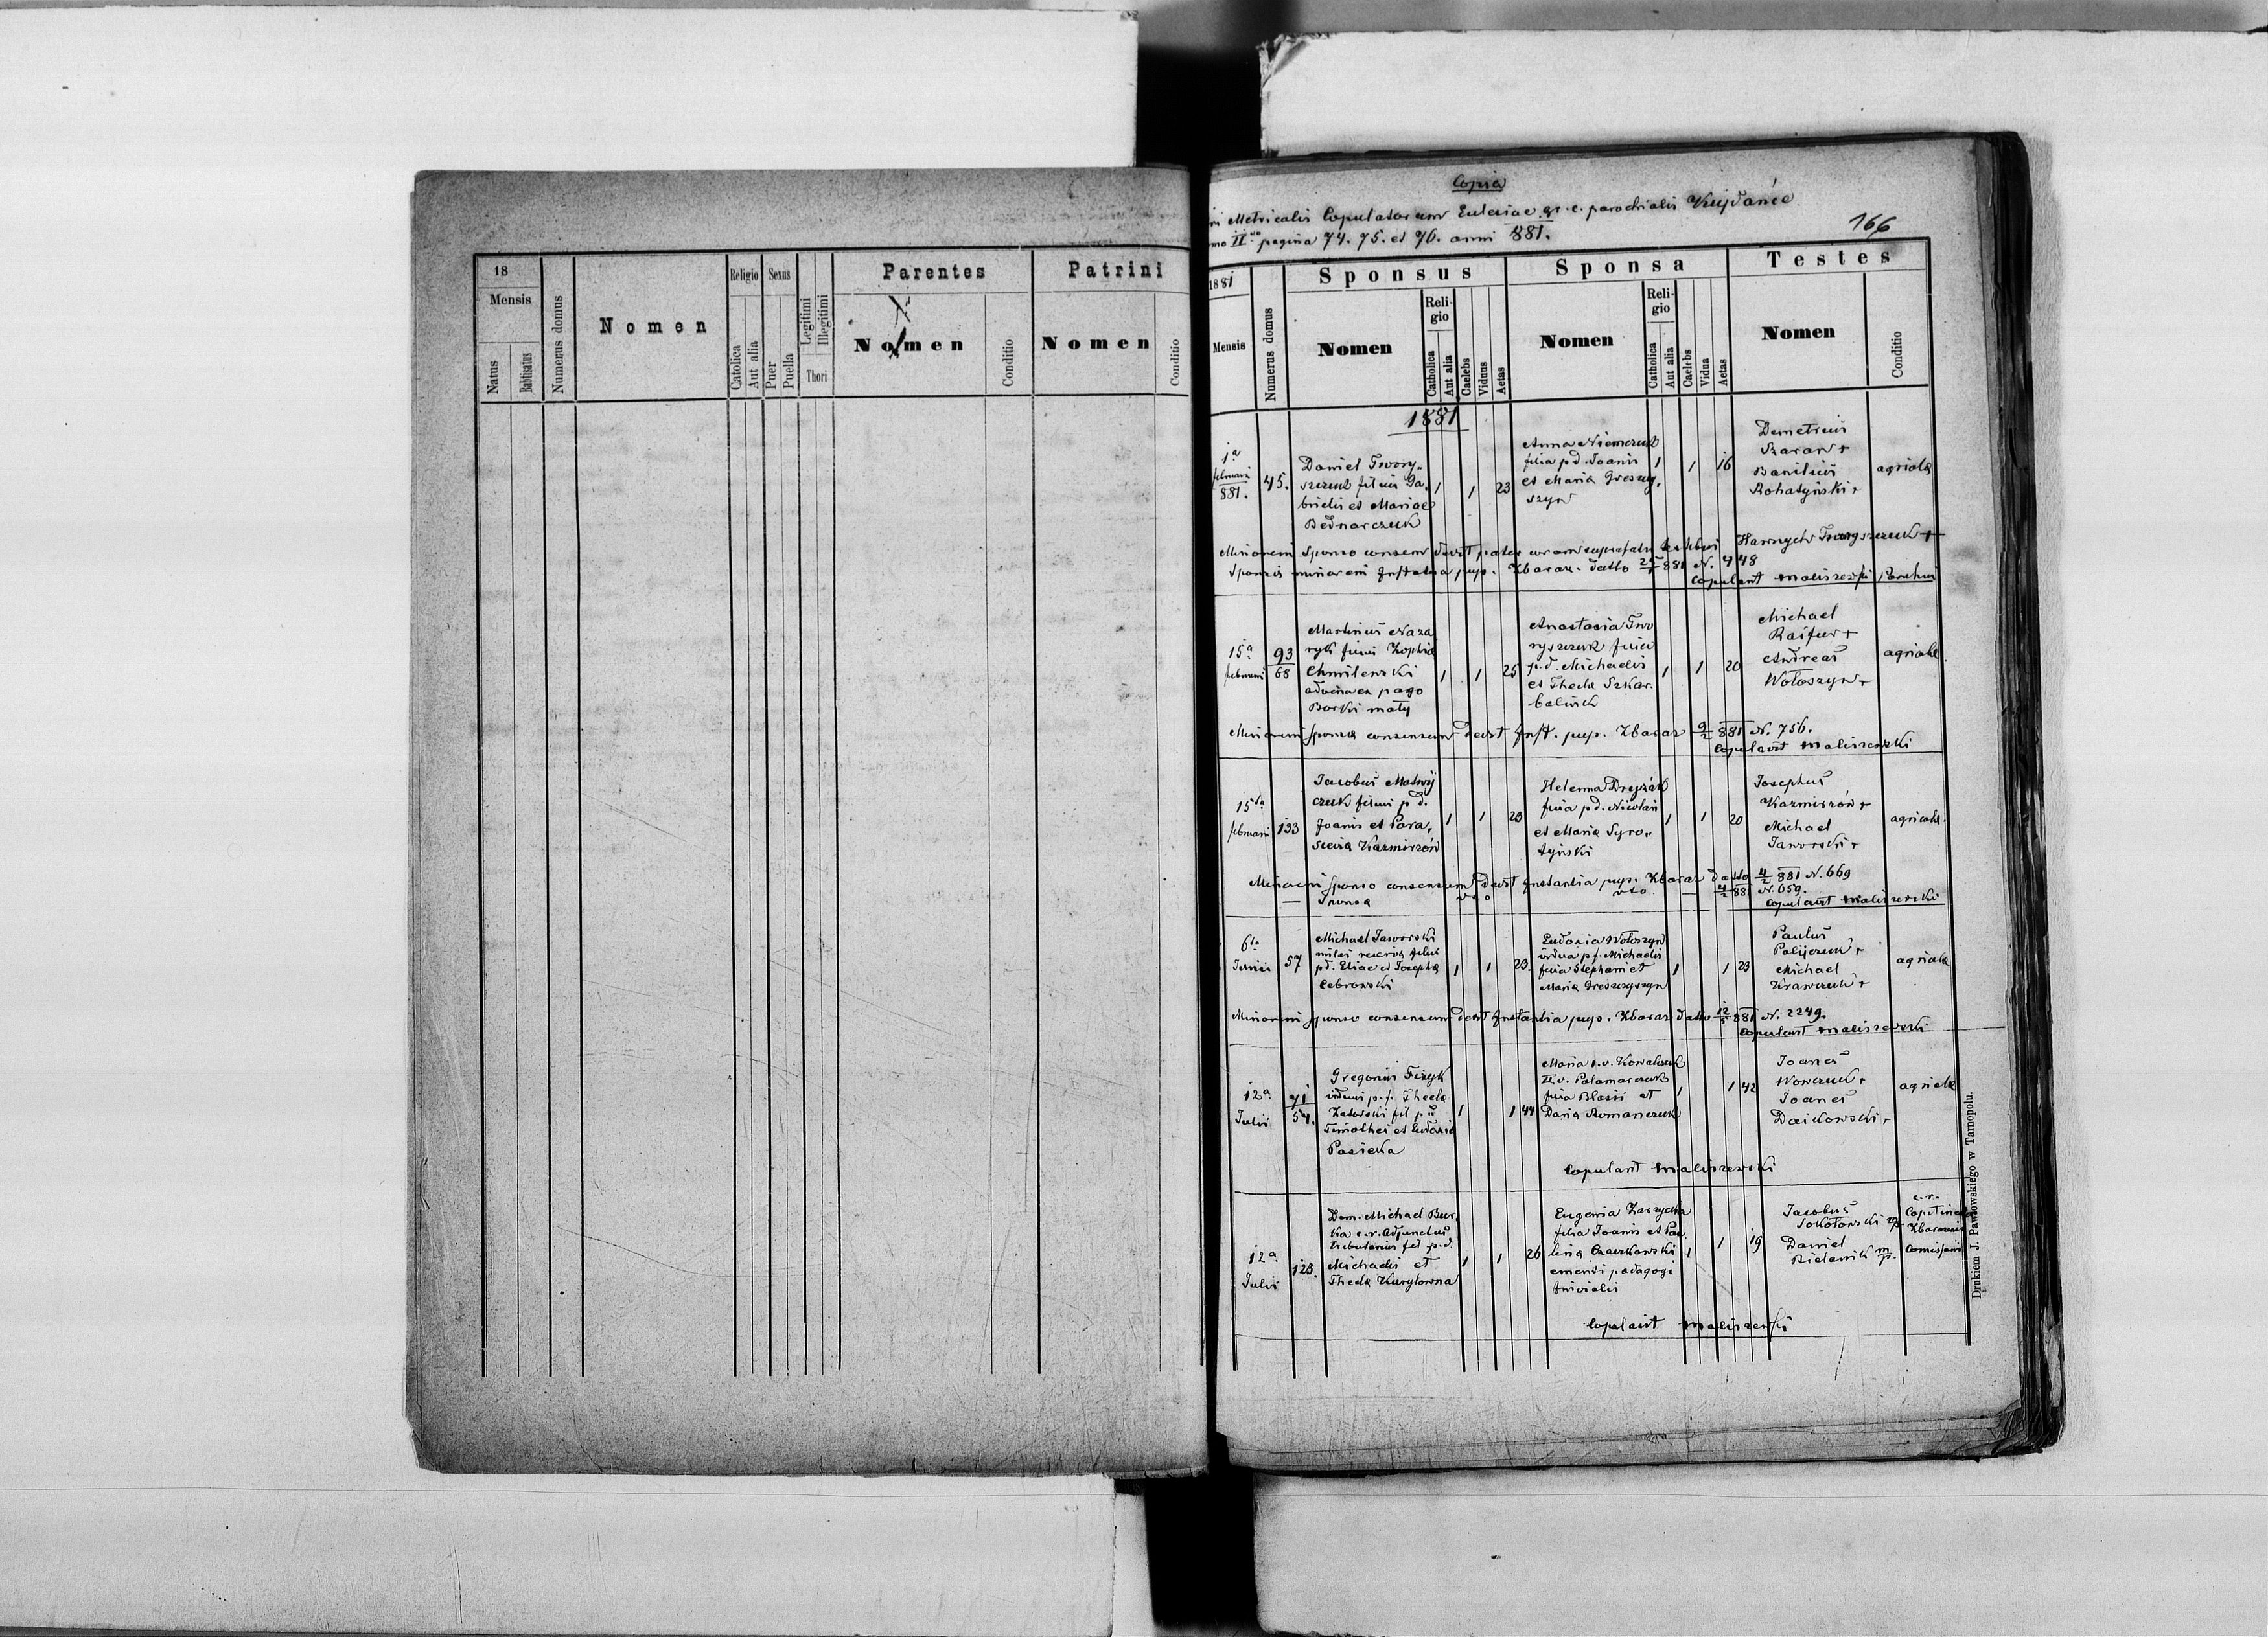 18
Mensis
Natus
Babtisatus
Numerus domus
Nomen
Religio
Catolica
Aut alia
Sexus
Puer
Puella
Legitimi
Illegitimi
Thori
Parentes
Nomen
Conditio
Patrini
Nomen
Conditio
Copia
Metricalis Copulatorum Eclesiae gr. c. parochialis Kujdańce
II pagina 74. 75. et 76. anni 881.
166
1881
Mensis
Numerus domus
Sponsus
Nomen
Reli-
gio
Catholica
Aut alia
Caelebs
Viduus
Aetas
Sponsa
Nomen
Reli-
gio
Catholica
Aut alia
Caelebs
Vidua
Aetas
Testes
Nomen
Conditio
1881
1a
februarii
881.
45.
Daniel Twory-
szczuk filius Ga-
brielis et Mariae
Bednarczuk
1 1 23
Anna Niemczuk
filia p d. Joanis
et Maria Greszczy-
szyn
1 1 16
Demetrius
Szaran +
Basilius
Rohatyński +
agricolae
Minoreni Sponso consens dedit pater coram testibus Hawrych Tworyszczuk +
Sponsae minoreni Instantia pup. Zbaraz. datto 881 N. 448
Copulavit Maliszewski
15a
februarii
93
68
Martinus Naza
ryk filius Zophia
Chmilewski
advena ex pago
Borki mały
1 1 25
Anastasia Two
ryszczuk filia
p. d. Michaelis
et Thecla Szkar-
baluck
1 1 20
Michael
Raifur +
Andreas
Wołoszyn +
agricolae
Minoreni sponsa consensum dedit Inst. pup. Zbaraz 9/2 881 N. 756.
Copulavit Maliszewski
15ta
februarii
133
Jacobus Matwij
czuk filius p d.
Joanis et Para-
scevia Kazmirzów
1 1 23
Helenna Dreyzak
filia p d. Nicolai
et Maria Syro-
tyński
1 1 20
Josephus
Kazmirzów +
Michael
Jaworski +
agricolae
Minoreni Sponso consensum dedit Instantia pup. Zbaraz datto 4/2 881 N. 669
Sponsa 4/2 881 N. 659.
Copulavit Maliszewski
6ta
Junii
57
Michael Jaworski
miles reserva filius
pd. Eliae et Josepha
Cebrowski
1 1 23.
Eudoxia Wołoszyn
vidua p f. Michaelis
filia Stephani et
Maria Greszczyszyn
1 1 23
Paulus
Palijczuk +
Michael
Krawczuk +
agricolae
Minoreni sponso consensum dedit Instantia pup. Zbaraz datto 12/5 881 N. 2249.
Copulavit Maliszewski
12a
Julii
71
54.
Gregorius Fizyk
viduus p. f. Thecla
Zatorski fil p d
Timothei et Eudoxia
Pasieka
1 1 44
Maria 1. v. Kowalczuk
II v. Palamarczuk
filia Blasii et
Daria Romanczuk
1 1 42
Joanes
Wowczuk +
Joanes
Daikowski +
agricolae
Copulavit Maliszewski
12a
Julii
123.
Dom. Michael Bur-
ka c. r. Adjunctus
tributarius fil p. d.
Michaelis et
Thecla Kurylowna
1 1 26
Eugenia Zarzycka
filia Joanis et Pau
lina Czaczkowski
emeriti pædagogi
trivialis
1 1 19
Jacobus
Sokołowski mp.
Daniel
Bielawik mp.
c. r.
Capitin
Zbarazensis
Comissarii
Copulavit Maliszewski
Drukiem J. Pawłowskiego w Tarnopolu.